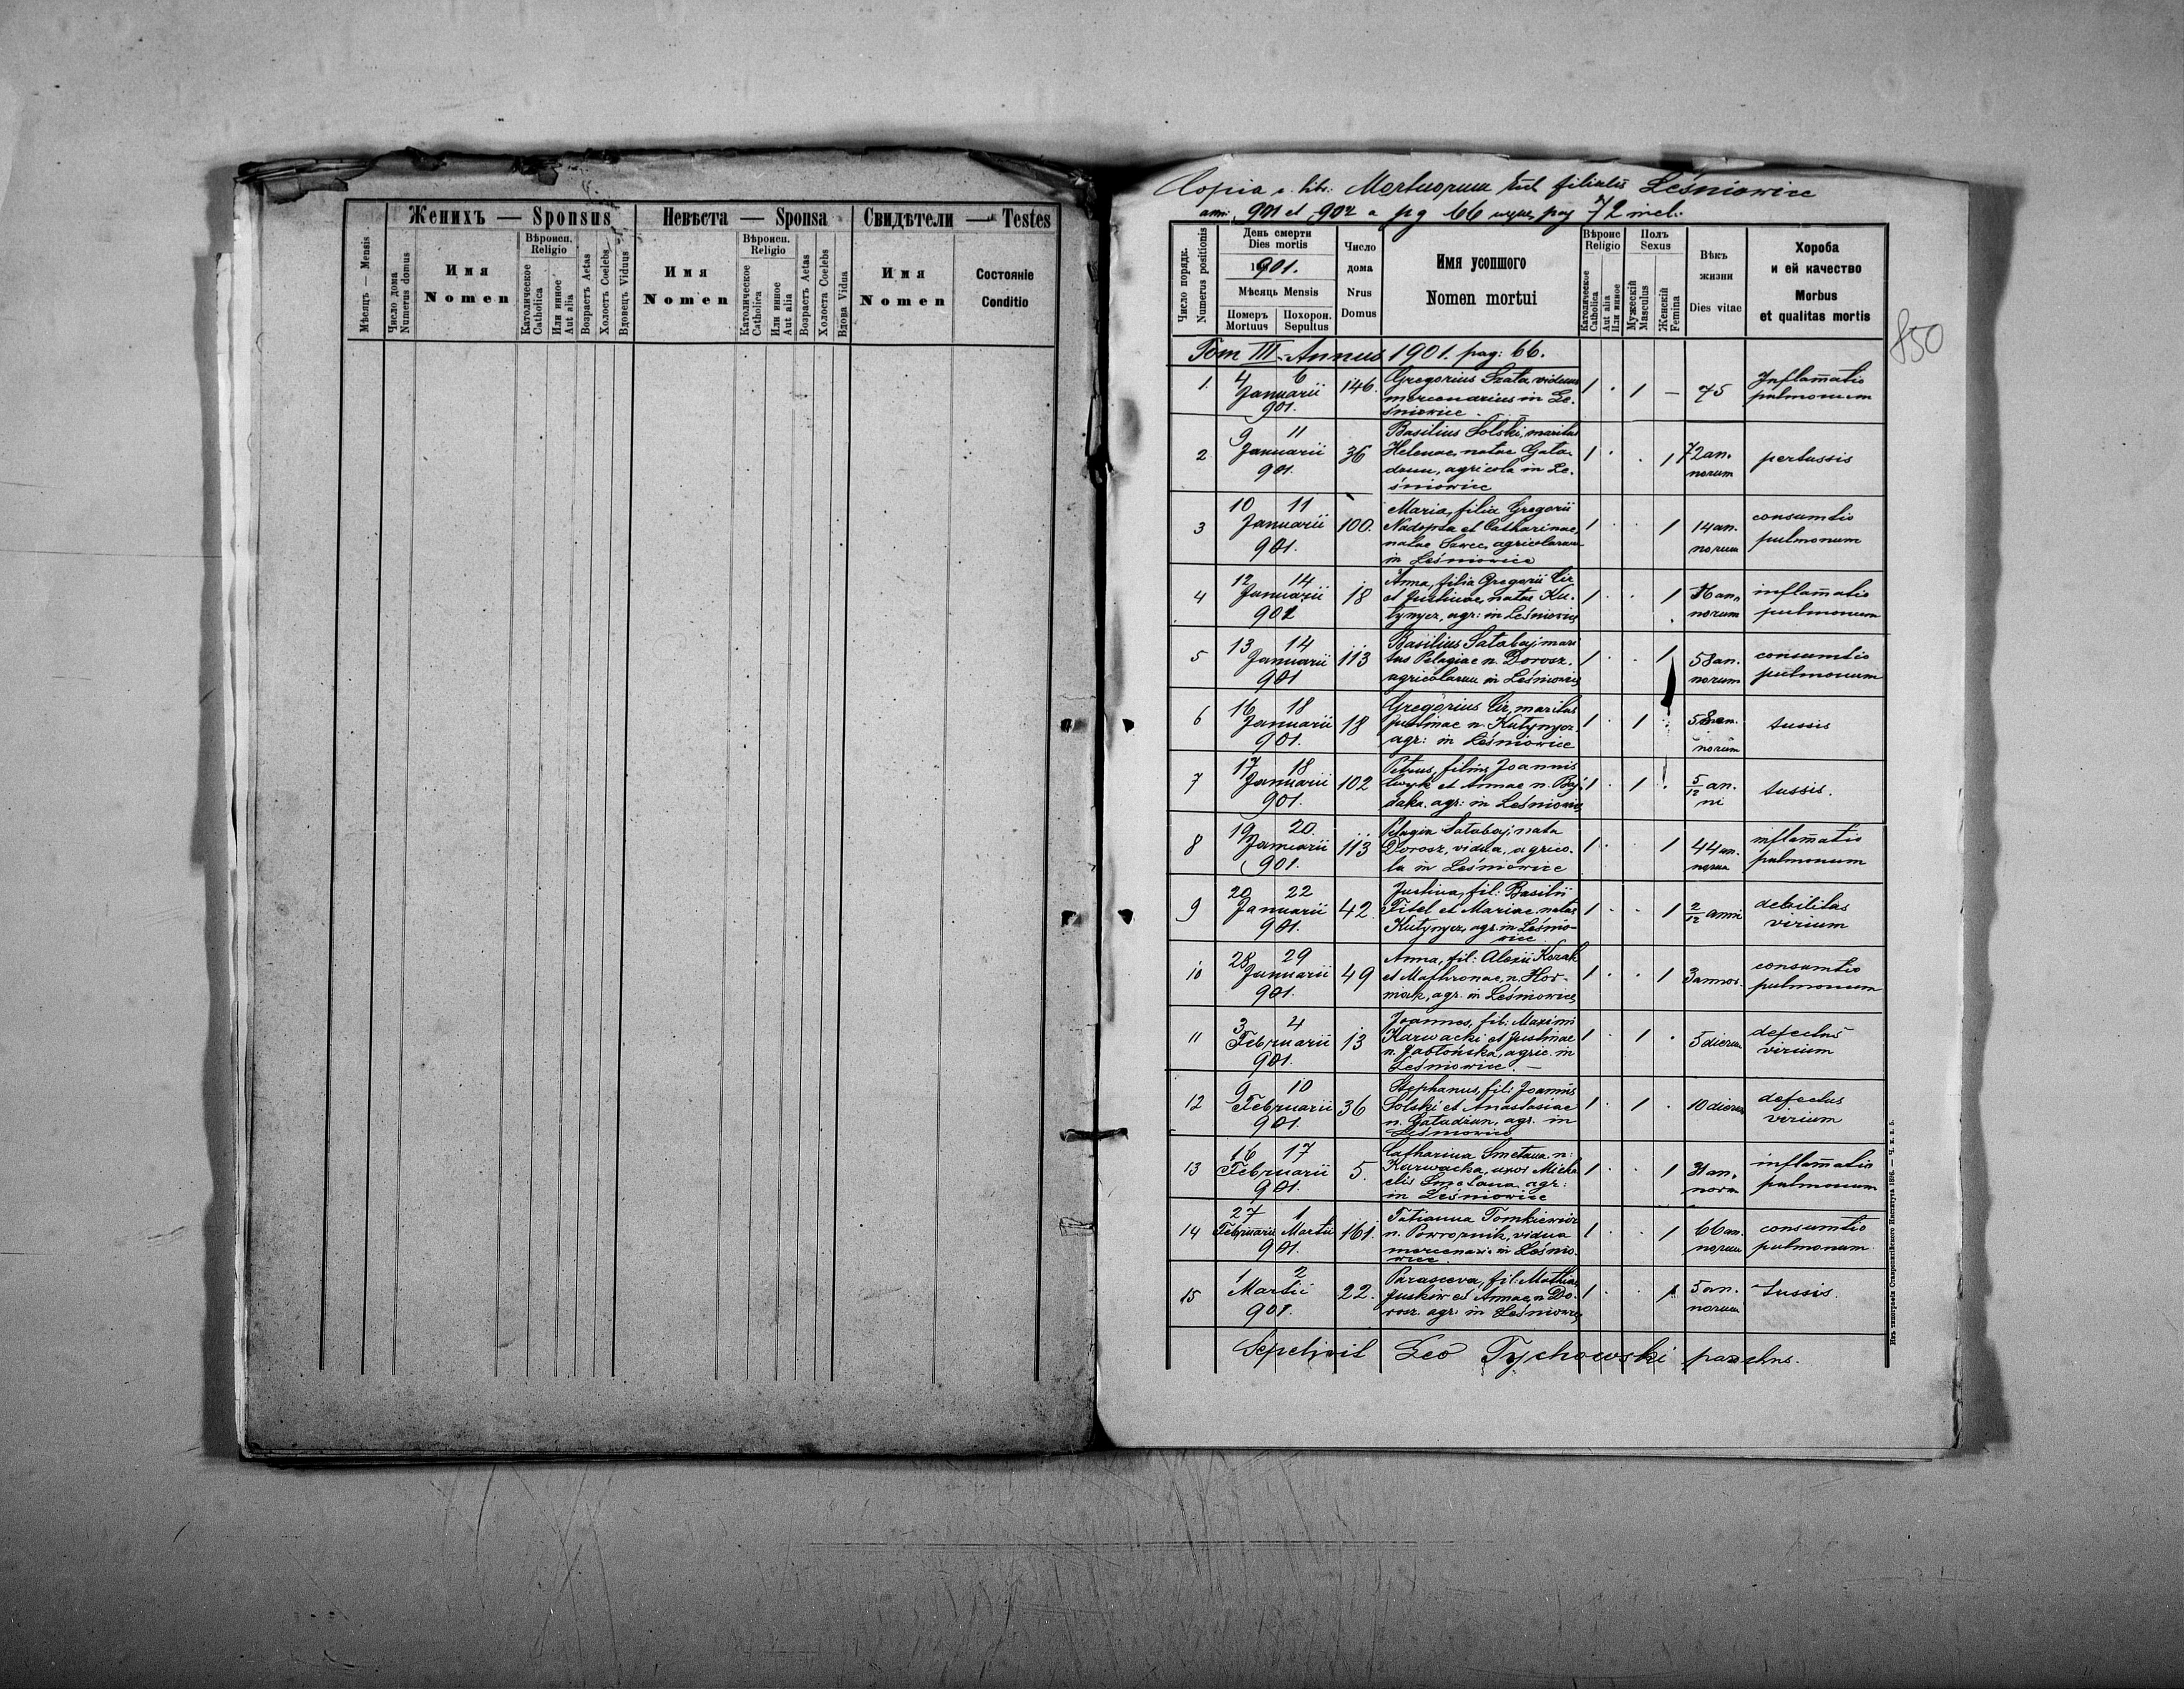 Женихъ — Sponsus
Невѣста — Sponsa
Свидѣтели — Testes
Мѣсяцъ — Mensis
Число дома
Numerus domus
Имя
Nomen
Вѣроисп.
Religio
Католическое
Catholica
Или инное
Aut alia
Возрастъ Aetas
Холостъ Coelebs
Вдовецъ Viduus
Имя
Nomen
Вѣроисп.
Religio
Католическое
Catholica
Или инное
Aut alia
Возрастъ Aetas
Холоста Coelebs
Вдова Vidua
Имя
Nomen
Состояніе
Conditio
Copia e libr. Mortuorum filialis Leśniowice
anni 901 et 902 a pg 66 usque pag 72 incl.
850
Число порядк.
Numerus positionis
День смерти
Dies mortis
901.
Мѣсяць Mensis
Померъ
Mortuus
Похорон.
Sepultus
Число
дома
Nrus
Domus
Имя усопшого
Nomen mortui
Вѣроис
Religio
Католическое
Catholica
Aut alia
Или инное
Полъ
Sexus
Мужескій
Masculus
Женскій
Femina
Вѣкъ
жизни
Dies vitae
Хороба
и ей качество
Morbus
et qualitas mortis
Tom III. Annus 1901. pag: 66.
1. 4 6 Januarii 901. 146. Gregorius Szata, viduus
mercenarius in Le-
śniowice 1 · 1 — 75 Inflamatio
pulmonum
2 9 11 Januarii 901. 36 Basilius Solski, maritus
Helenae, natae Gała-
dzun, agricola in Le-
śniowice 1 · · 1 72 an-
norum pertussis
3 10 11 Januarii 901. 100. Maria, filia Gregorii
et Catharinae,
natae Sawec, agricolarum
in Leśniowice 1 · · 1 14 an-
norum consumtio
pulmonum
4 12 14 Januarii 901 18 Anna, filia Gregorii Cir
et Justinae, natae Ku-
tynycz, agr: in Leśniowice 1 · · 1 an-
norum inflamatio
pulmonum
5 13 14 Januarii 901 113 Basilius Satabaj, mari
tus Pelagiae n. Dorosz.
agricolarum in Leśniowice 1 · · 1 58 an.
norum consumtio
pulmonum
6 16 18 Januarii 901. 18 Gregorius Cir, maritus
Justinae n. Kutynycz.
agr: in Leśniowice 1 · 1 · 58 an.
norum tussis
7 17 18 Januarii 901. 102 Petrus, filius Joannis
et Annae n. Baj
daka. agr: in Leśniowice 1 · 1 · 5/12 an.
ni tussis.
8 19 20. Januarii 901. 113 Pelagia Satabaj, nata
Dorosz, vidua, agrico-
la in Leśniowice 1 · · 1 44 an.
norum inflamatio
pulmonum
9 20 22 Januarii 901. 42 Justina, fil: Basilii
Fitel et Mariae, natae
Kutynycz, agr. in Leśnio-
wice 1 · · 1 2/12 anni debilitas
virium
10 28 29 Januarii 901. 49 Anna, fil: Alexii Kozak
et Mathronae, n. Hor-
niak, agr. in Leśniowice 1 · · 1 3 annor. consumtio
pulmonum
11 3 4 Februarii 901. 13 Joannes, fil: Maximi
Karwacki et Justinae
n. Jabłońska, agric. in
Leśniowice. — 1 · 1 · 5 dierum defectus
virium
12 9 10 Februarii 901. 36 Stephanus, fil: Joannis
Solski et Anastasiae
n. Gałudzun, agr. in
Leśniowice 1 · 1 · 10 dierum defectus
virium
13 16 17 Februarii 901. 5. Catharina Smetana n:
Karwacka, uxor Micha
elis Smetana agr:
in Leśniowice 1 · · 1 31 an-
norum inflamatio
pulmonum
14 27 Februarii 1 Martii 901. 161. Tatianna Tomkiewicz
n. Powroznik, vidua
mercenaria in Leśnio-
wice. 1 · · 1 66 an.
norum consumtio
pulmonum
15 1 2 Martii 901. 22. Parasceva, fil: Mathiae
Juskiw et Annae, n. Do-
rosz. agr. in Leśniowice 1 · · 1 5 an.
norum tussis.
Sepelivit Leo Tychowski parochus.
Изъ типографіи Ставропигійского Института 1896. — Ч. к. в. 5.